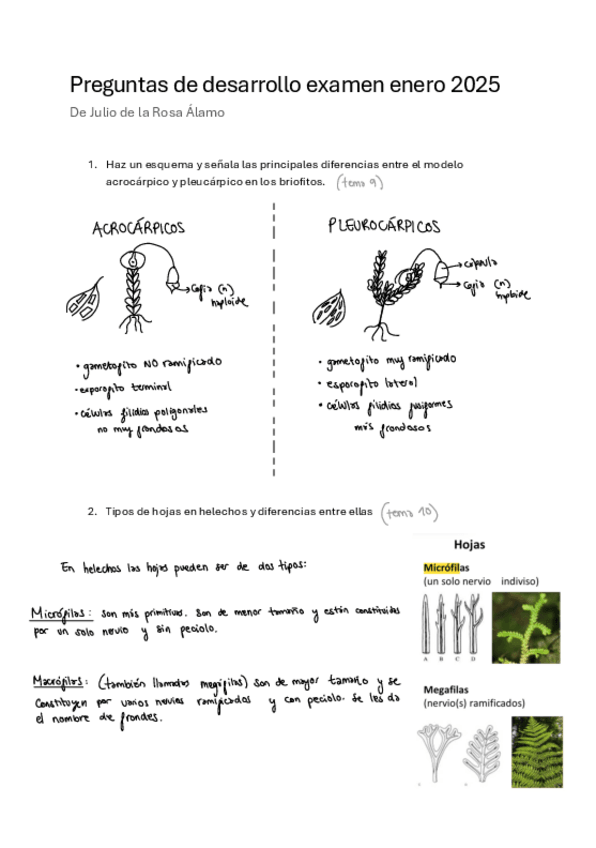 Preguntas de desarrollo examen enero 2025
De Julio de la Rosa Álamo
1. Haz un esquema y señala las principales diferencias entre el modelo
acrocárpico y pleucárpico en los briofitos. (tema 9)
ACROCÁRPICOS
→Cofia (n)
haploide
• gametofito NO ramificado
• esporofito terminal
• células filidios poligonales
no muy frondosos
PLEUROCÁRPICOS
→cápsula
→Cofia (n)
haploide
• gametofito muy ramificado
• esporofito lateral
• células filidios fusiformes
más frondosos
2. Tipos de hojas en helechos y diferencias entre ellas (tema 10)
En helechos las hojas pueden ser de dos tipos:
Micrófilas: son más primitivas. Son de menor tamaño y están constituidas
por un solo nervio y sin peciolo.
Macrófilas: (también llamadas megáfilas) son de mayor tamaño y se
constituyen por varios nervios ramificados y con peciolo. Se les da
el nombre de frondes.
Hojas
Micrófilas
(un solo nervio indiviso)
A B C D
Megafilas
(nervio(s) ramificados)